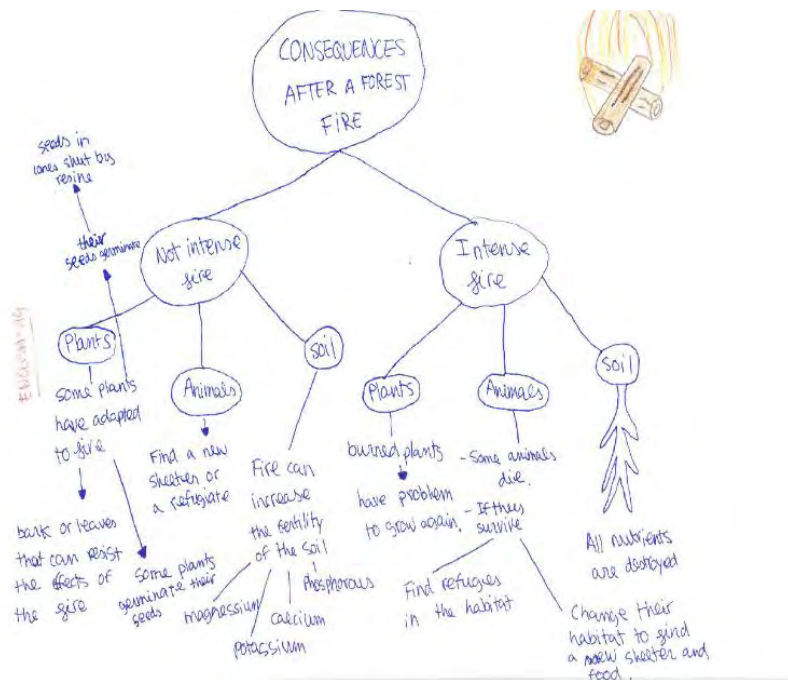 CONSEQUENCES
AFTER A FOREST
FIRE
seeds in
cones shut by
resine
their
seeds germinate
Not intense
fire
Intense
fire
Plants
some plants
have adapted
to fire
bark or leaves
that can resist
the effects of
the fire
Some plants
germinate their
seeds
Animals
Find a new
shelter or
a refugiate
Soil
Fire can
increase
the fertility
of the soil
magnessium
potassium
calcium
Phosphorous
Plants
burned plants
have problem
to grow again.
Animals
- Some animals
die.
- If they
survive
Find refugies
in the habitat
Change their
habitat to find
a new shelter and
food.
Soil
All nutrients
are destroyed